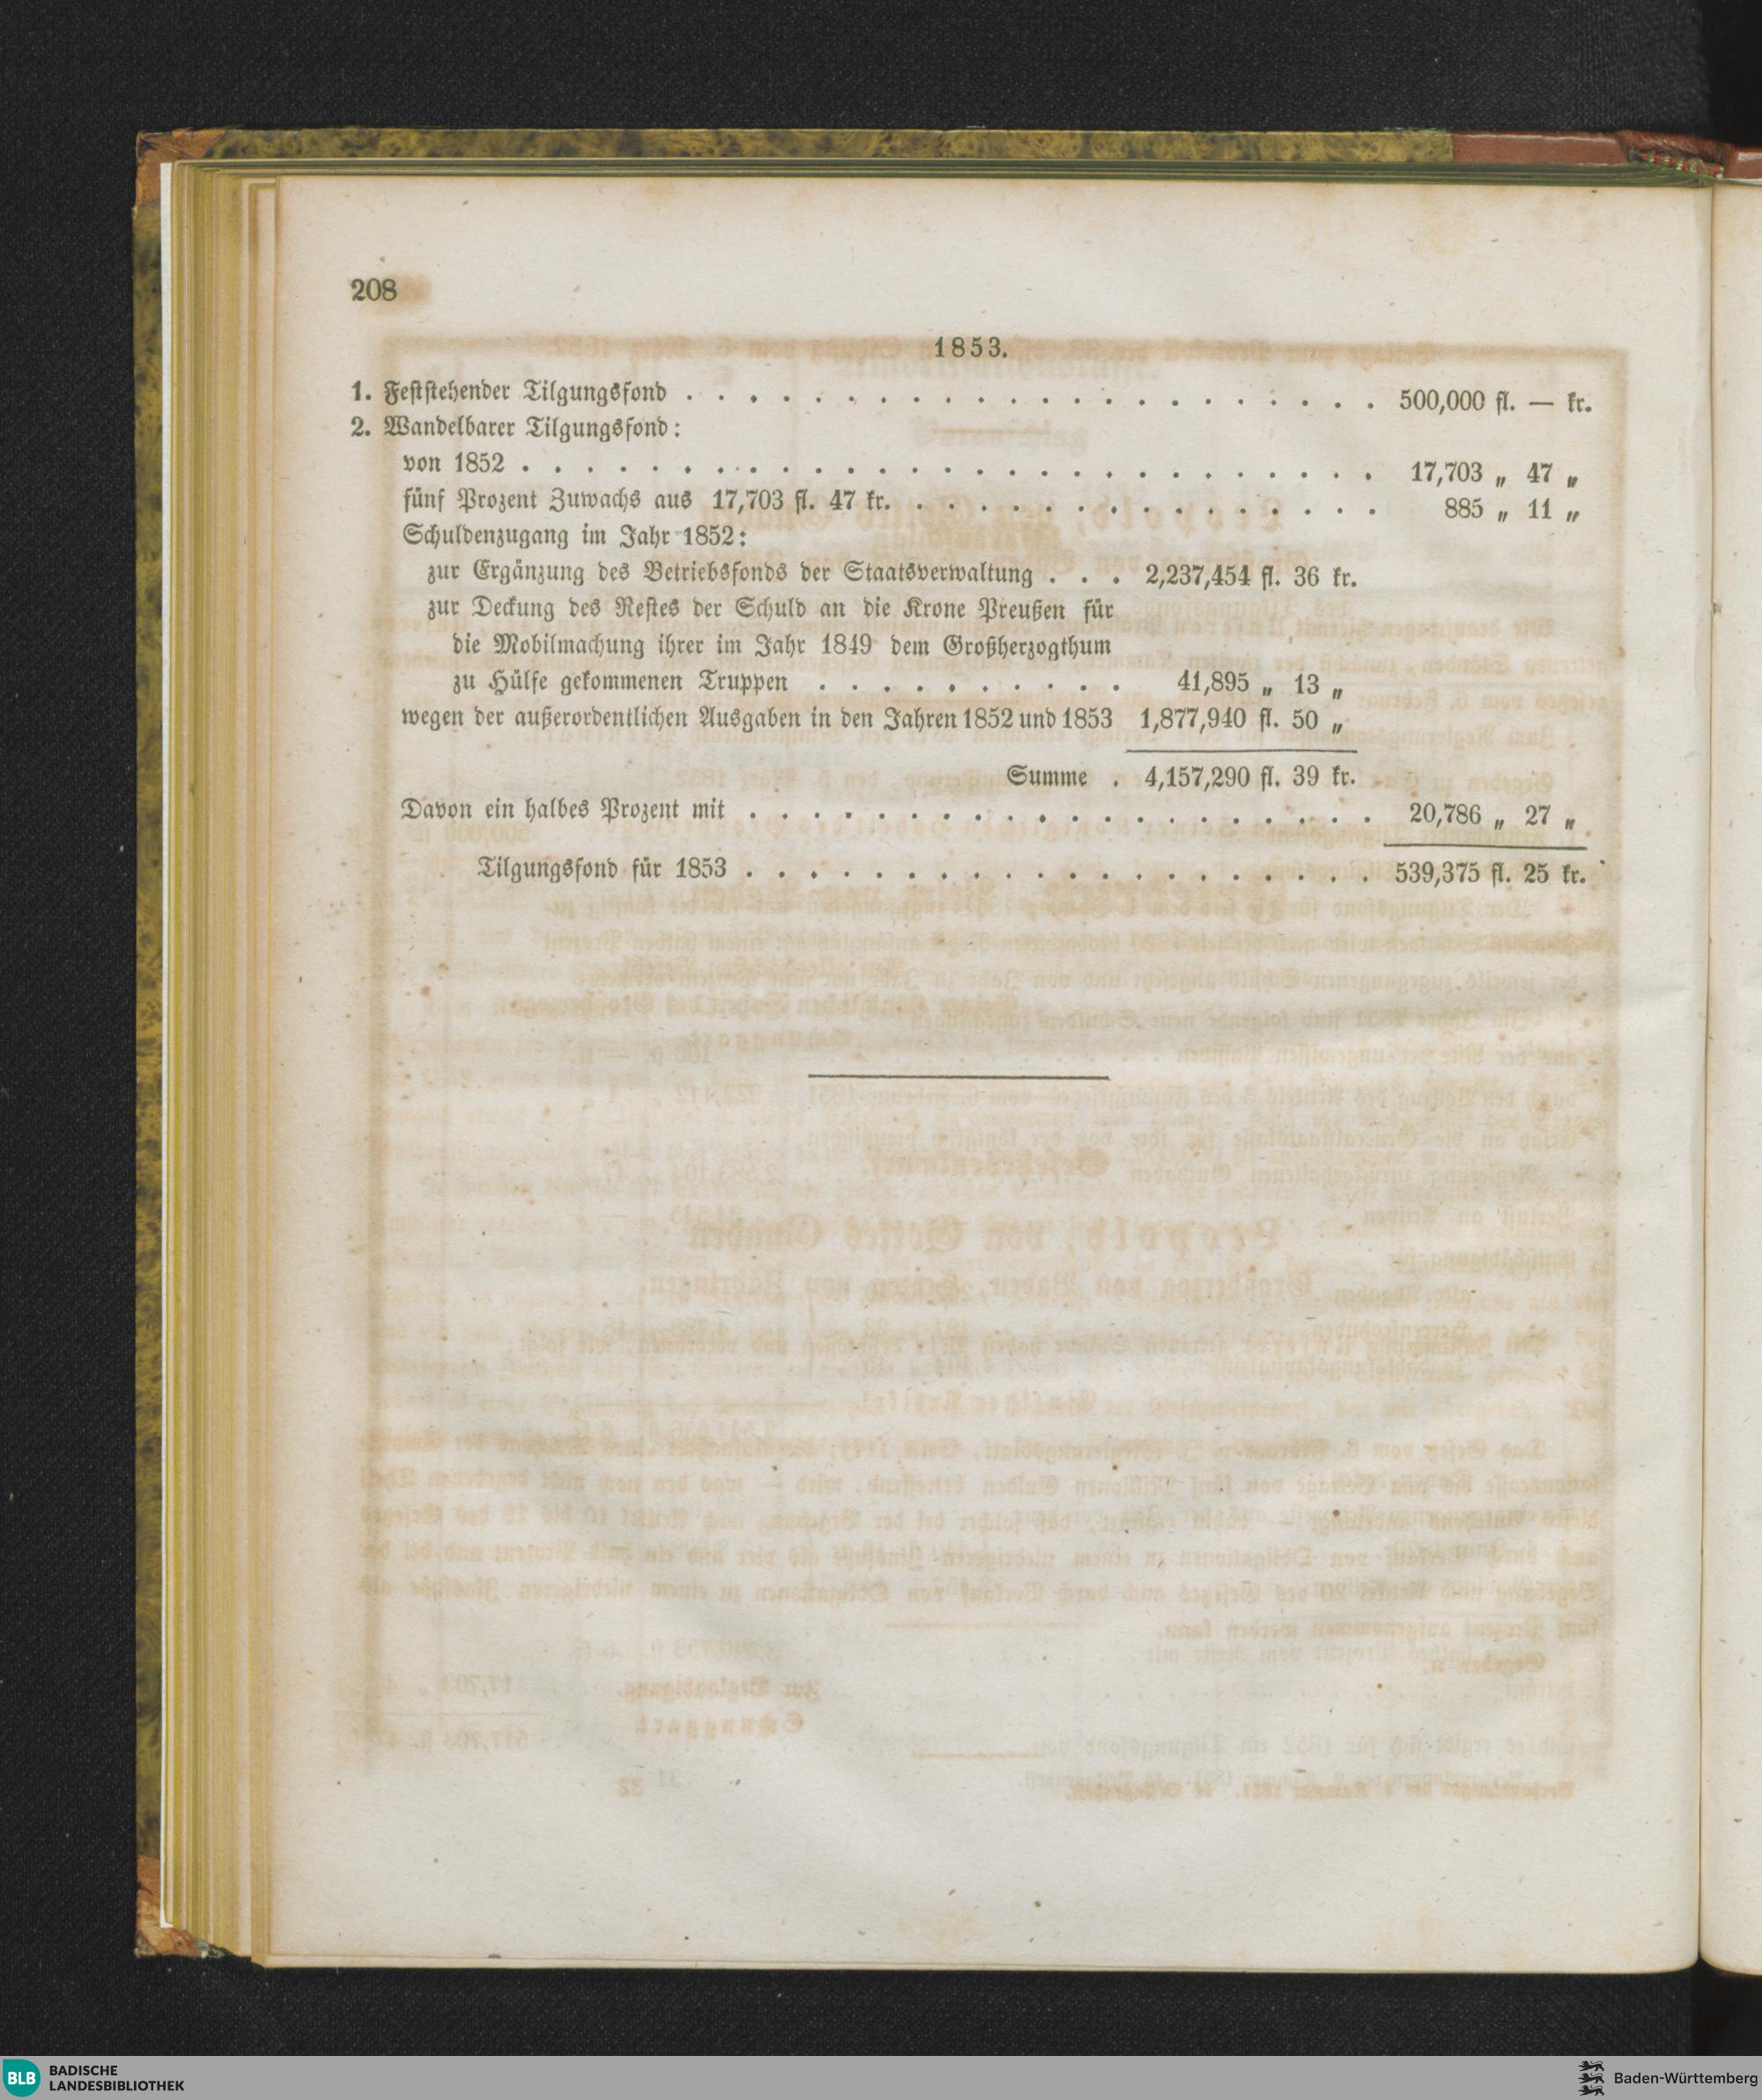 208
1853.
1. Feststehender Tilgungsfond . . . . . . . . . . . . . . . . . . . . . . 500,000 fl. — kr.
2. Wandelbarer Tilgungsfond:
von 1852 . . . . . . . . . . . . . . . . . . . . . . . . . . . 17,703 „ 47 „
fünf Prozent Zuwachs aus 17,703 fl. 47 kr. . . . . . . . . . . . . . . . 885 „ 11 „
Schuldenzugang im Jahr 1852:
zur Ergänzung des Betriebsfonds der Staatsverwaltung . . . 2,237,454 fl. 36 kr.
zur Deckung des Restes der Schuld an die Krone Preußen für
die Mobilmachung ihrer im Jahr 1849 dem Großherzogthum
zu Hülfe gekommenen Truppen . . . . . . . . . . 41,895 „ 13 „
wegen der außerordentlichen Ausgaben in den Jahren 1852 und 1853 1,877,940 fl. 50 „
Summe . 4,157,290 fl. 39 kr.
Davon ein halbes Prozent mit . . . . . . . . . . . . . . . . . . . . 20,786 „ 27 „
Tilgungsfond für 1853 . . . . . . . . . . . . . . . . . . . . 539,375 fl. 25 kr.
BLB BADISCHE
LANDESBIBLIOTHEK
Baden-Württemberg